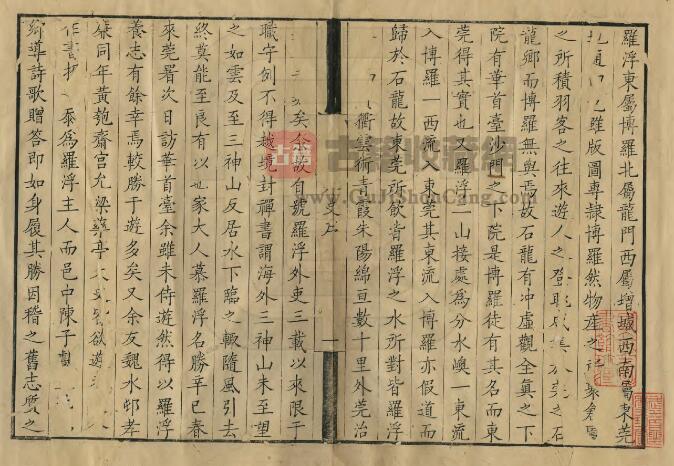 羅浮東屬博羅北屬龍門西屬增城西南屬東莞
雖版圖專隸博羅然物產之
之所積羽客之往來遊人之登眺之石
龍鄉而博羅無與焉故石龍有沖虛觀全真之下
院有華首臺沙門之下院是博羅徒有其名而東
莞得其實也又羅浮一山接處為分水嶼一東流
入博羅一西流入東莞其東流入博羅亦假道而
歸於石龍故東莞所飲皆羅浮之水所對皆羅浮
衢雲術青霞朱陽綿亘數十里外莞治
矣余故自號羅浮外吏三載以來限于
職守例不得越境封禪書謂海外三神山未至望
之如雲及至三神山反居水下臨之輒隨風引去
終莫能至良有以也家大人慕羅浮名勝辛巳春
來莞署次日訪華首臺余雖未侍遊然得以羅浮
養志有餘幸焉較勝于遊多矣又余友魏水邨孝
廉同年黃匏齋宮允梁亭欲遊
作書為羅浮主人而邑中陳子
鄉導詩歌贈答即如身履其勝因稽之舊志質之
古籍收藏網
www.GuJiShouCang.com